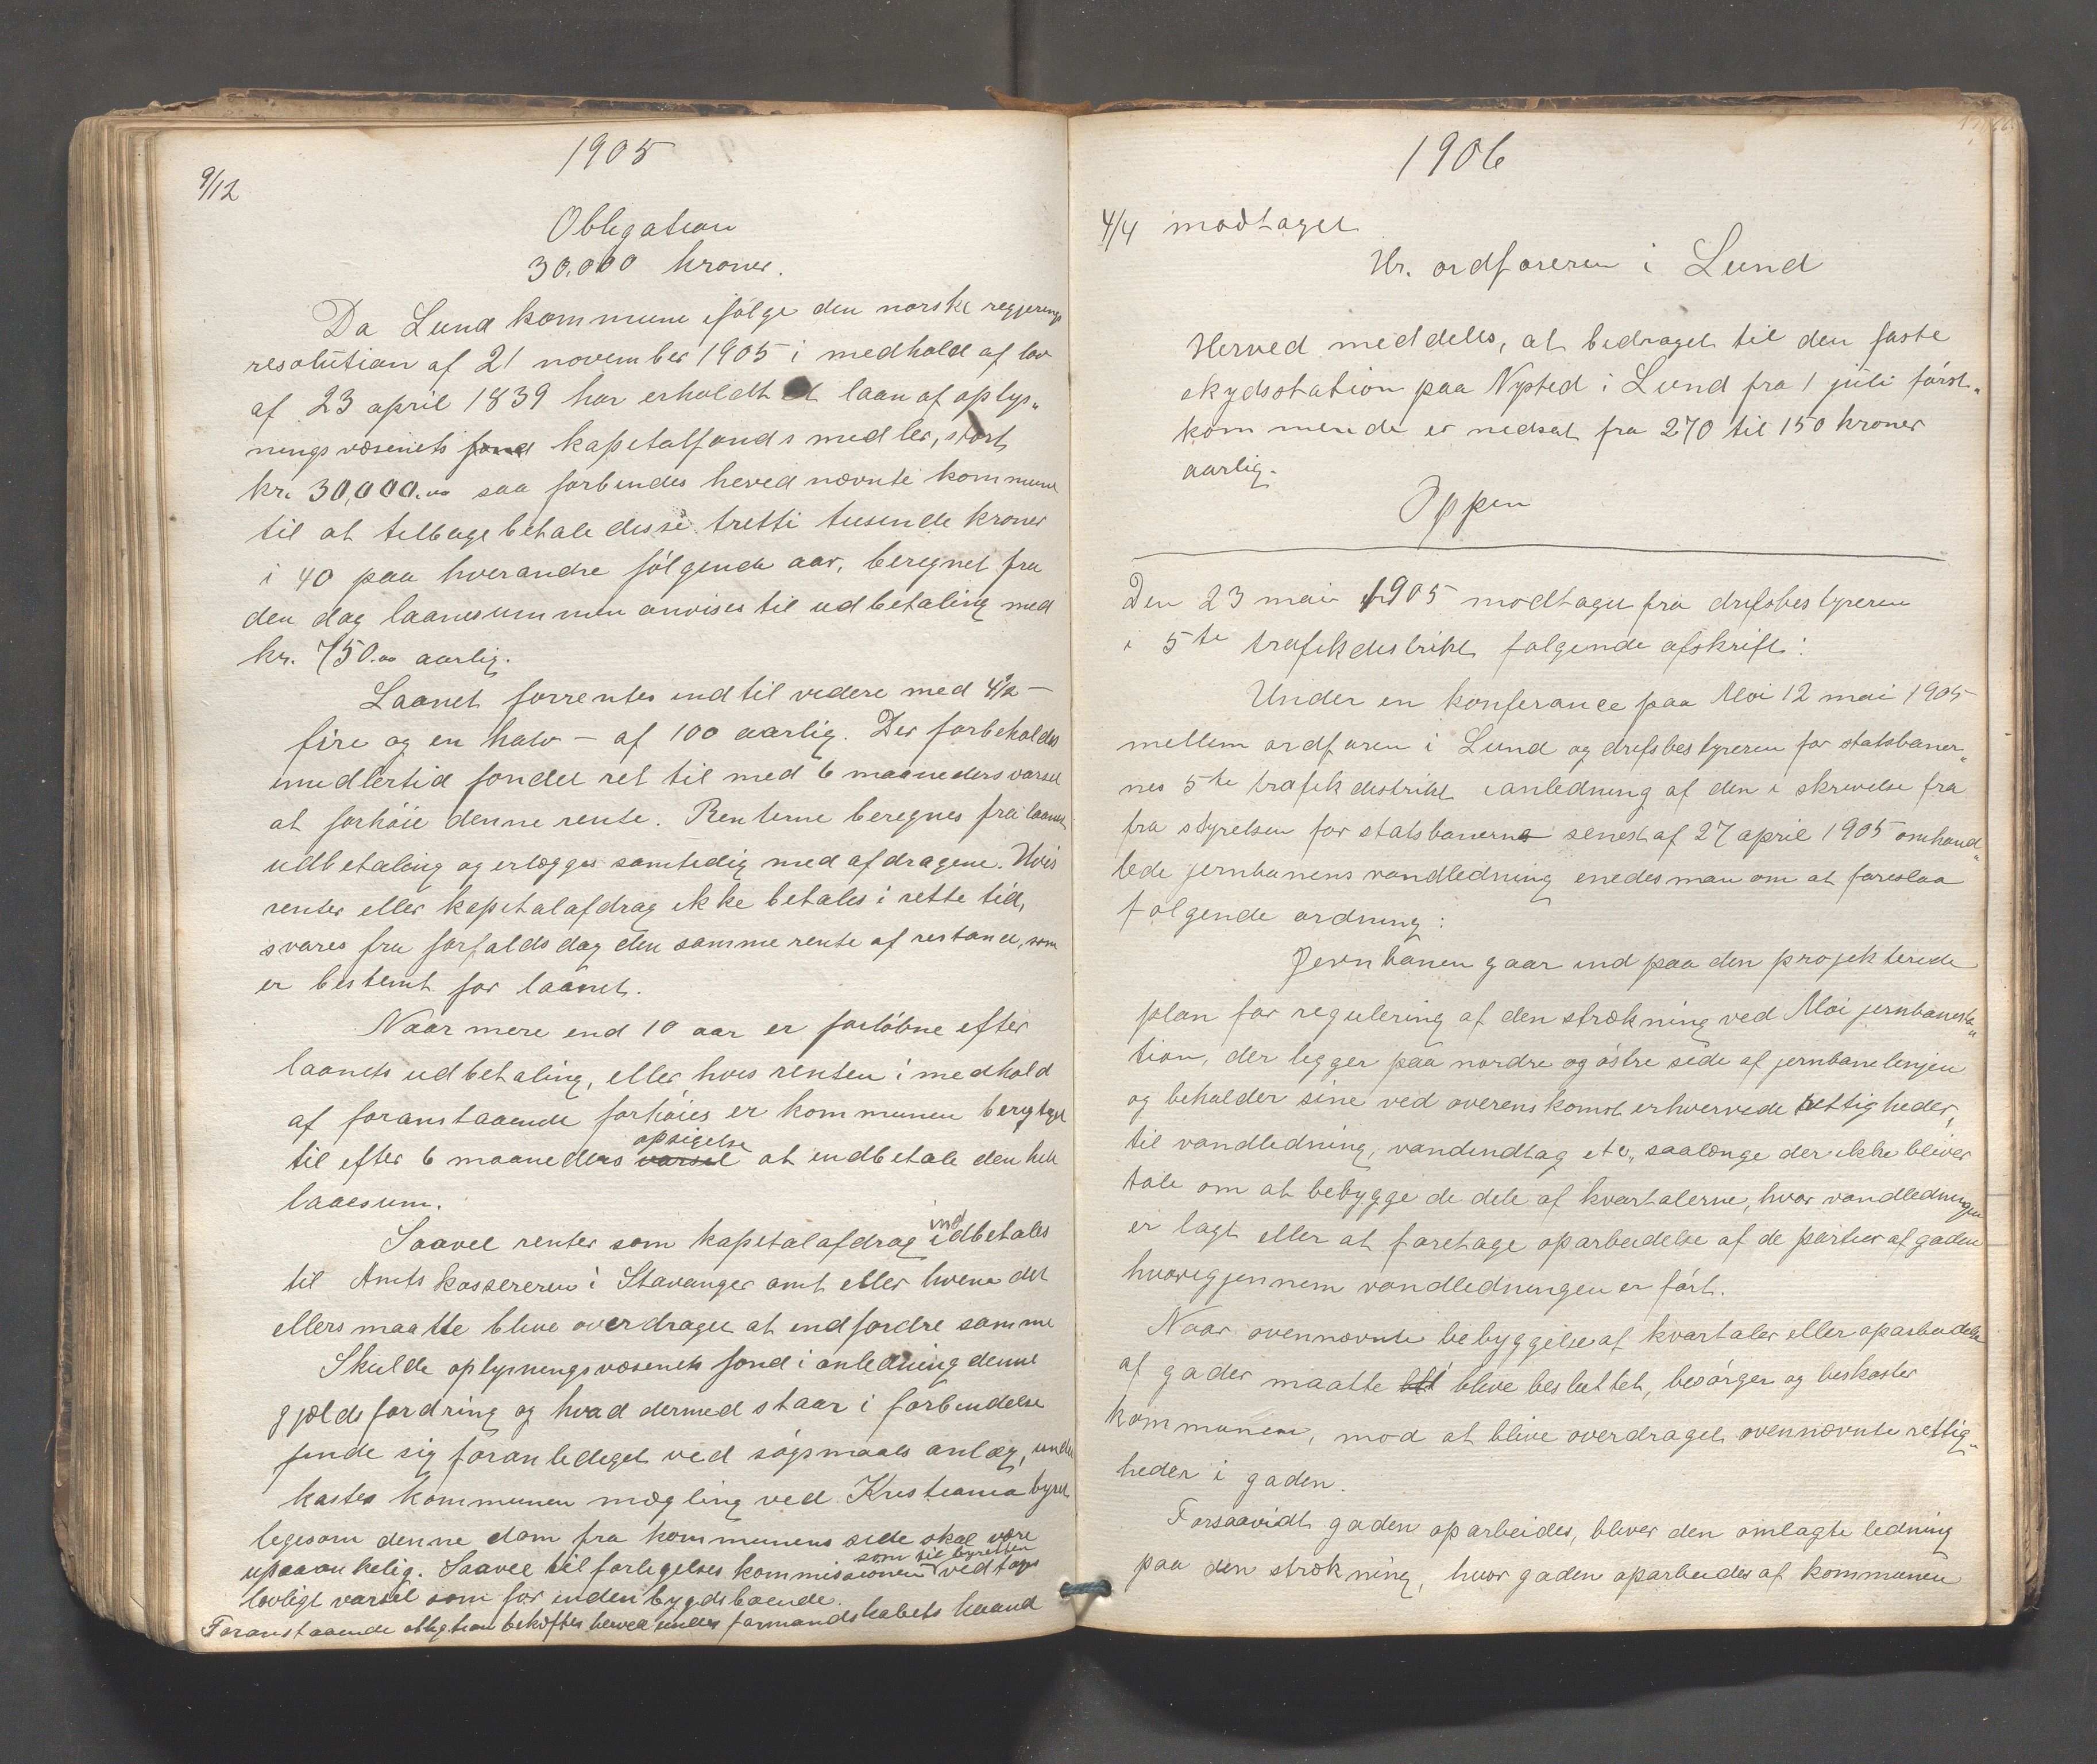 1905
9/12
Obligation
30.000 kroner.
Da Lund kommune ifølge den norske regjerings
resolution af 21 november 1905 i medhold af lov
af 23 april 1839 har erholdt et laan af oplys„
ningsvæsenets fond kapitalfonds midler, stort
kr. 30,000.00 saa forbindes herved nævnte kommune
til at tilbagebetale disse tretti tusende kroner
i 40 paa hverandre følgende aar, beregnet fra
den dag laanesummen anvises til udbetaling med
kr. 750.00 aarlig.
Laanet forrentes indtil videre med 4½ –
fire og en halv – af 100 aarlig. Der forbeholdes
imidlertid fondet ret til med 6 maaneders varsel
at forhøie denne rente. Renterne beregnes fra laanets
udbetaling og erlægges samtidig med afdragene. Hvis
renter eller kapitalafdrag ikke betales i rette tid,
svares fra forfaldsdag den samme rente af restance, som
er bestemt for laanet.
Naar mere end 10 aar er forløbne efter
laanets udbetaling, eller hvis renten i medhold
af foranstaaende forhøies er kommunen berygtiget
til efter 6 maaneders varsel opsigelse at indbetale den hele
laaesum.
Saavel renter som kapitalafdrag indbetales
til Amtskassereren i Stavanger amt eller hvem det
ellers maatte blive overdraget at indfordre samme
Skulde oplysningsvæsenets fond i anledning denne
gjældsfordring og hvad dermed staar i forbindelse
finde sig foranlediget ved søgsmaals anlæg, under
kastes kommunen mægling ved Kristiania byret
ligesom denne dom fra kommunens side skal være
upaaankelig. Saavel til forligelseskommissionen som til byretten vedtages
lovligt varsel som for indenbygdsboende.
Foranstaaende obligtion bekræftes herved under formandskabets haand
1906
4/4 modtaget
Hr. ordføreren i Lund
Herved meddeles, at bidraget til den faste
skydsstation paa Nysted i Lund fra 1 juli først„
kommende er nedsat fra 270 til 150 kroner
aarlig.
Oppen
Den 23 mai 1905 modtaget fra driftsbestyreren
i 5te trafikdistrikt følgende afskrift:
Under en konferance paa Moi 12 mai 1905
mellem ordføren i Lund og drifsbestyreren for statsbaner„
nes 5te trafikdistrikt ianledning af den i skrivelse fra
fra styrelsen for statsbanerne senest af 27 april 1905 omhand„
lede jernbanens vandledning enedes man om at foreslaa
følgende ordning:
Jernbanen gaar ind paa den projekterede
plan for regulering af den strækning ved Moi jernbanesta„
tion, der ligger paa nordre og østre side af jernbanelinjen
og beholder sine ved overenskomst erhvervede rettigheder,
til vandledning, vandindtag etc, saalænge der ikke bliver
tale om at bebygge de dele af kvartalerne, hvor vandledningen
er lagt eller at foretage oparbeidelse af de partier af gaden
hvorigjennem vandledningen er ført.
Naar ovennævnte bebyggelse af kvartaler eller oparbeidelse
af gader maatte blive besluttet, besørger og bekoster
kommunen, mod at blive overdraget ovennævnte rettig„
heder i gaden.
Forsaavidt gaden oparbeides, bliver den omlagte ledning
paa den strækning, hvor gaden oparbeides af kommunen